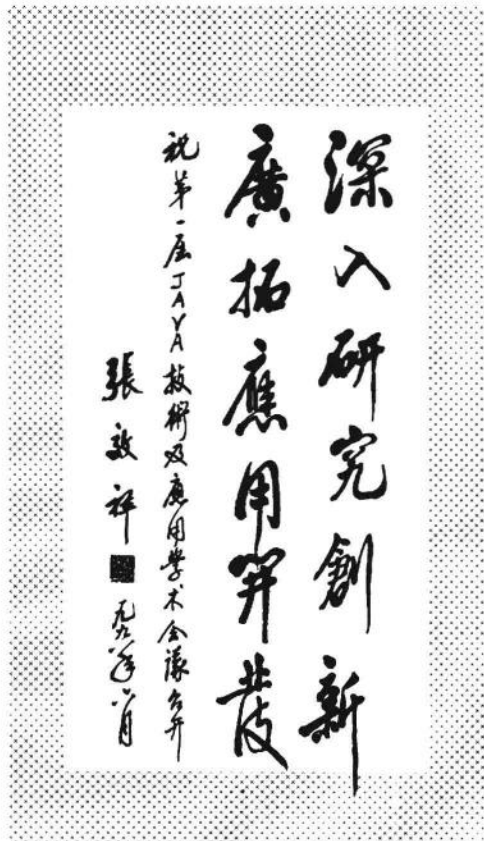 深入研究創新
廣拓應用開發
祝第一届JAVA技術及應用學术会議召开
張效祥
一九九八年八月